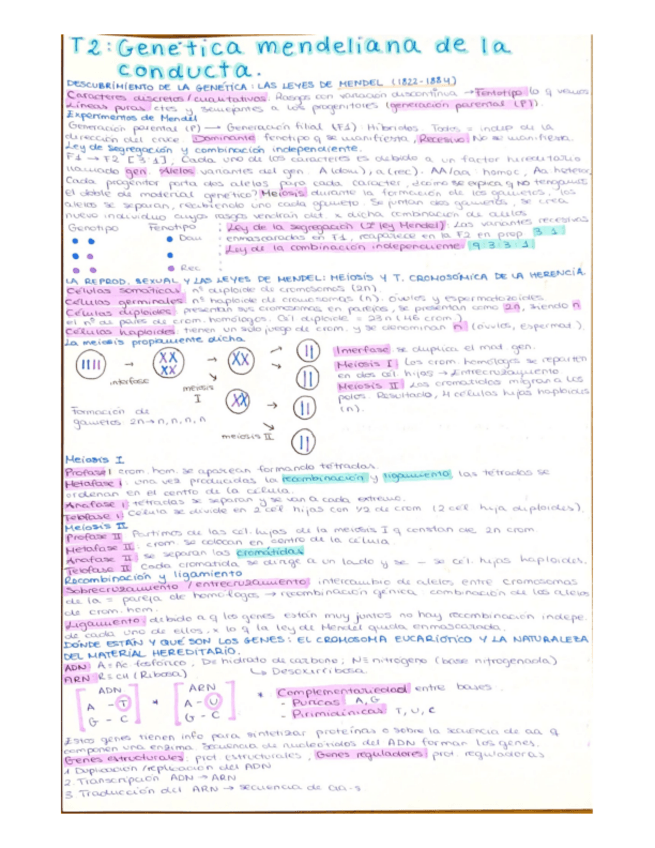 T2: Genética mendeliana de la
conducta.
DESCUBRIMIENTO DE LA GENÉTICA: LAS LEYES DE MENDEL (1822-1884)
Caracteres discretos/cualitativos. Rasgos con variación discontinua → Fenotipo lo q vemos.
Líneas puras ctes y semejantes a los progenitores (generación parental (P)).
Experimentos de Mendel
Generación parental (P) → Generación filial (F1) Híbridos. Todos = indep de la
dirección del cruce. Dominante fenotipo q se manifiesta, Recesivo No se manifiesta.
Ley de segregación y combinación independiente.
F1 → F2 [3:1], Cada uno de los caracteres es debido a un factor hereditario
llamado gen. Alelos variantes del gen. A (dom), a (rec). AA/aa: homoc, Aa heteroc.
Cada progenitor porta dos alelos para cada carácter, ¿cómo se explica q NO tengamos
el doble de material genético? Meiosis durante la formación de los gametos, los
alelos se separan, recibiendo uno cada gameto. Se juntan dos gametos, se crea
nuevo individuo cuyos rasgos vendrán det. x dicha combinación de alelos
Genotipo Fenotipo
Dom
Rec
Ley de la segregación (I ley Mendel): Las variantes recesivas
enmascaradas en F1, reaparece en la F2 en prop 3:1
Ley de la combinación independiente 9:3:3:1
LA REPROD. SEXUAL Y LAS LEYES DE MENDEL: MEIOSIS Y T. CROMOSÓMICA DE LA HERENCIA.
Células somáticas: nº diploide de cromosomas (2n).
Células germinales: nº haploide de cromosomas (n). óvulos y espermatozoides
Células diploides: presentan sus cromosomas en parejas, se presentan como 2n, siendo n
el nº de pares de crom. homólogos.
Células haploides tienen un solo juego de crom. y se denominan n (óvulos, espermat.).
La meiosis propiamente dicha
interfase
meiosis
I
meiosis II
Formación de
gametos. 2n → n, n, n, n
Interfase: se duplica el mat. gen.
Meiosis I: los crom. homólogos se reparten
en dos cél. hijas → Entrecruzamiento.
Meiosis II: Las cromátidas migran a los
polos. Resultado, 4 células hijas haploides
(n).
Meiosis I
Profase I crom. hom. se aparean formando tétradas.
Metafase I: una vez producidas la recombinación y ligamiento, las tétradas se
ordenan en el centro de la célula.
Anafase I: tétradas se separan y se van a cada extremo.
Telofase I: Célula se divide en 2 cél hijas con 1/2 de crom (2 cél hija diploides).
Meiosis II
Profase II Partimos de las cél. hijas de la meiosis I q constan de 2n crom.
Metafase II crom. se colocan en centro de la célula.
Anafase II se separan las cromátidas
Telofase II Cada cromátida se dirige a un lado y se cél. hijas haploides.
Recombinación y ligamiento
Sobrecruzamiento / entrecruzamiento: intercambio de alelos entre cromosomas
de la = pareja de homólogos → recombinación génica: combinación de los alelos
de crom. hom.
Ligamiento: debido a q los genes están muy juntos no hay recombinación indepe.
de cada uno de ellos, x lo q la ley de Mendel queda enmascarada.
DÓNDE ESTÁN Y QUÉ SON LOS GENES: EL CROMOSOMA EUCARIÓTICO Y LA NATURALEZA
DEL MATERIAL HEREDITARIO.
ADN A = Ac fosfórico, D = hidrato de carbono; N = nitrógeno (base nitrogenada)
ARN R = CH (Ribosa) ↳ Desoxirribosa
ADN
A - T
G - C
ARN
A - U
G - C
* Complementariedad entre bases.
- Púricas A, G
- Pirimidínicas T, U, C
Estos genes tienen info para sintetizar proteínas o sobre la secuencia de aa q
componen una enzima. Secuencia de nucleótidos del ADN forman los genes.
Genes estructurales: prot. estructurales, Genes reguladores: prot. reguladoras
1 Duplicación/replicación del ADN
2. Transcripción ADN → ARN
3 Traducción del ARN → secuencia de aa-s.